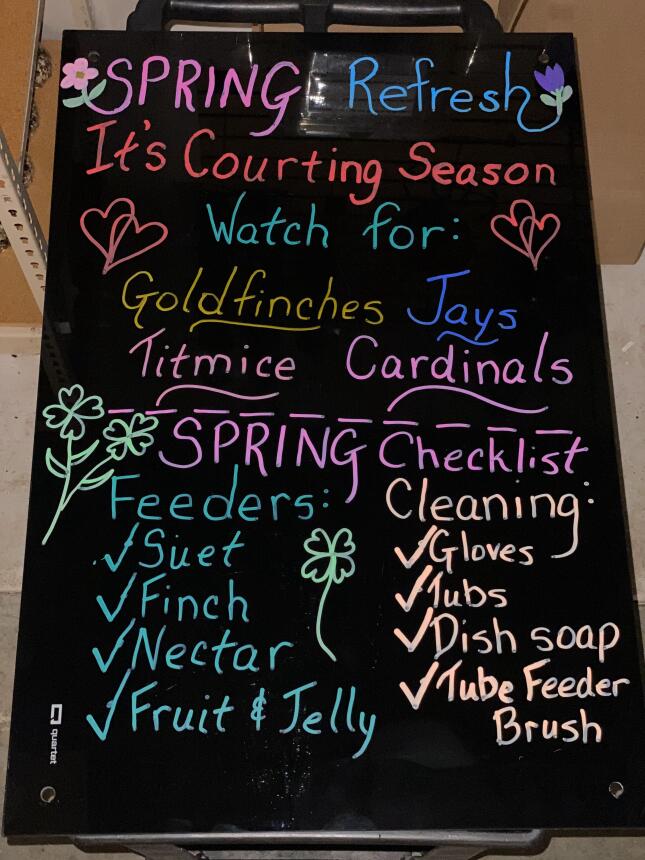 SPRING Refresh
It's Courting Season
Watch for:
Goldfinches Jays
Titmice Cardinals
SPRING Checklist
Feeders:
✓Suet
✓Finch
✓Nectar
✓Fruit & Jelly
Cleaning:
✓Gloves
✓Tubs
✓Dish soap
✓Tube Feeder
Brush
quartet